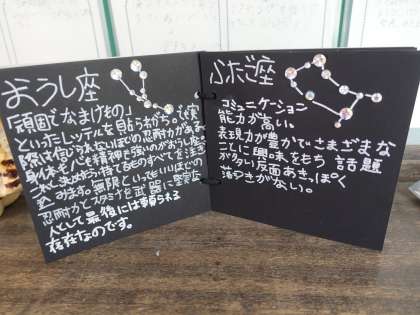 おうし座
「頑固でなまけもの」
といったレッテルを貼られがち。でも実
際は信じられないほどの忍耐力があ
身体も心も精神も強いのがおうし座
これと決めたら、持てるものすべてを注ぎ
込みます。無限といってもいいほどの
忍耐力とスタミナを武器に堅実な
人として最後には頼られる
存在なのです。
ふたご座
コミュニケーション
能力が高い。
表現力が豊かで、さまざまな
ことに興味をもち 話題
が多い反面あきっぽく
落ちつきがない。